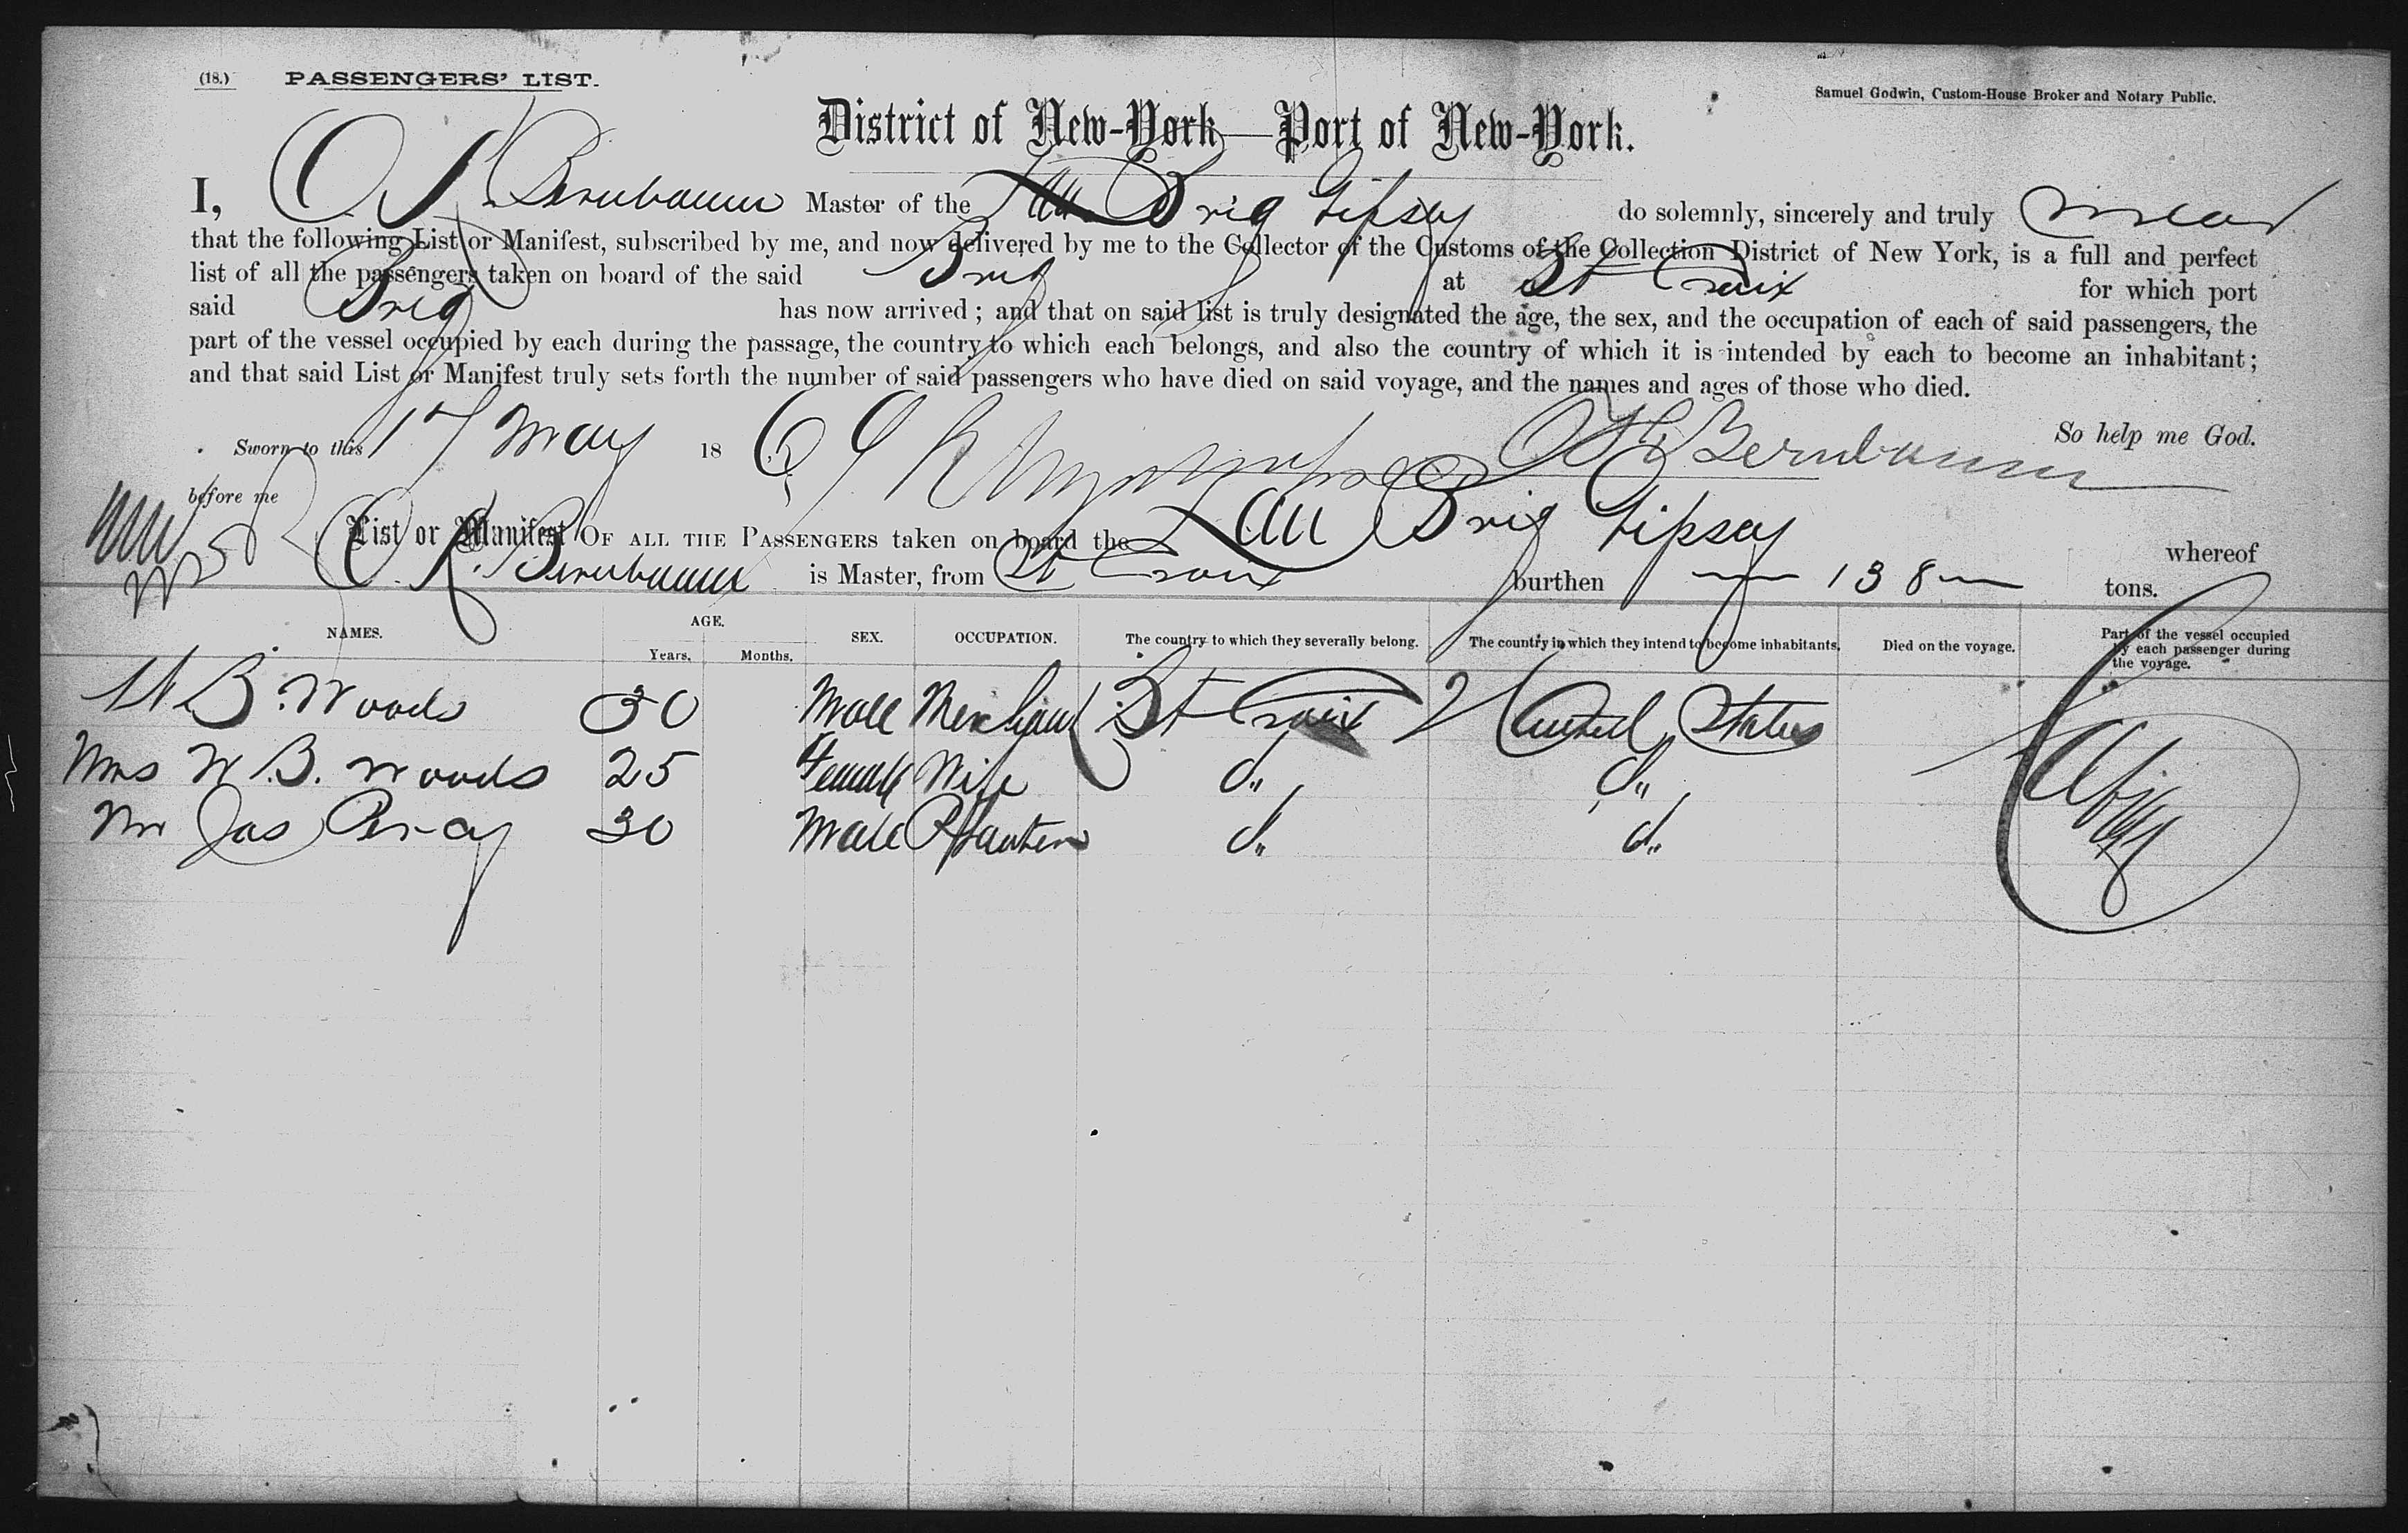 (18.) PASSENGERS' LIST.
Samuel Godwin, Custom-House Broker and Notary Public.
District of New-York—Port of New-York.
I, Bernbaum Master of the Brig Gipsey do solemnly, sincerely and truly swear
that the following List or Manifest, subscribed by me, and now delivered by me to the Collector of the Customs of the Collection District of New York, is a full and perfect
list of all the passengers taken on board of the said Brig at St Croix for which port
said Brig has now arrived; and that on said list is truly designated the age, the sex, and the occupation of each of said passengers, the
part of the vessel occupied by each during the passage, the country to which each belongs, and also the country of which it is intended by each to become an inhabitant;
and that said List or Manifest truly sets forth the number of said passengers who have died on said voyage, and the names and ages of those who died.
Sworn to this 17 May 1869 Bernbaum So help me God.
before me
List or Manifest OF ALL THE PASSENGERS taken on board the Brig Gipsey whereof
Bernbaum is Master, from St Croix burthen 138 tons.
NAMES. AGE. Years. Months. SEX. OCCUPATION. The country to which they severally belong. The country in which they intend to become inhabitants. Died on the voyage. Part of the vessel occupied by each passenger during the voyage.
W. B. Woods 30 Male Merchant St Croix United States
Mrs W. B. Woods 25 Female Wife d,, d,,
Mr Jas 30 Male Planter d,, d,,